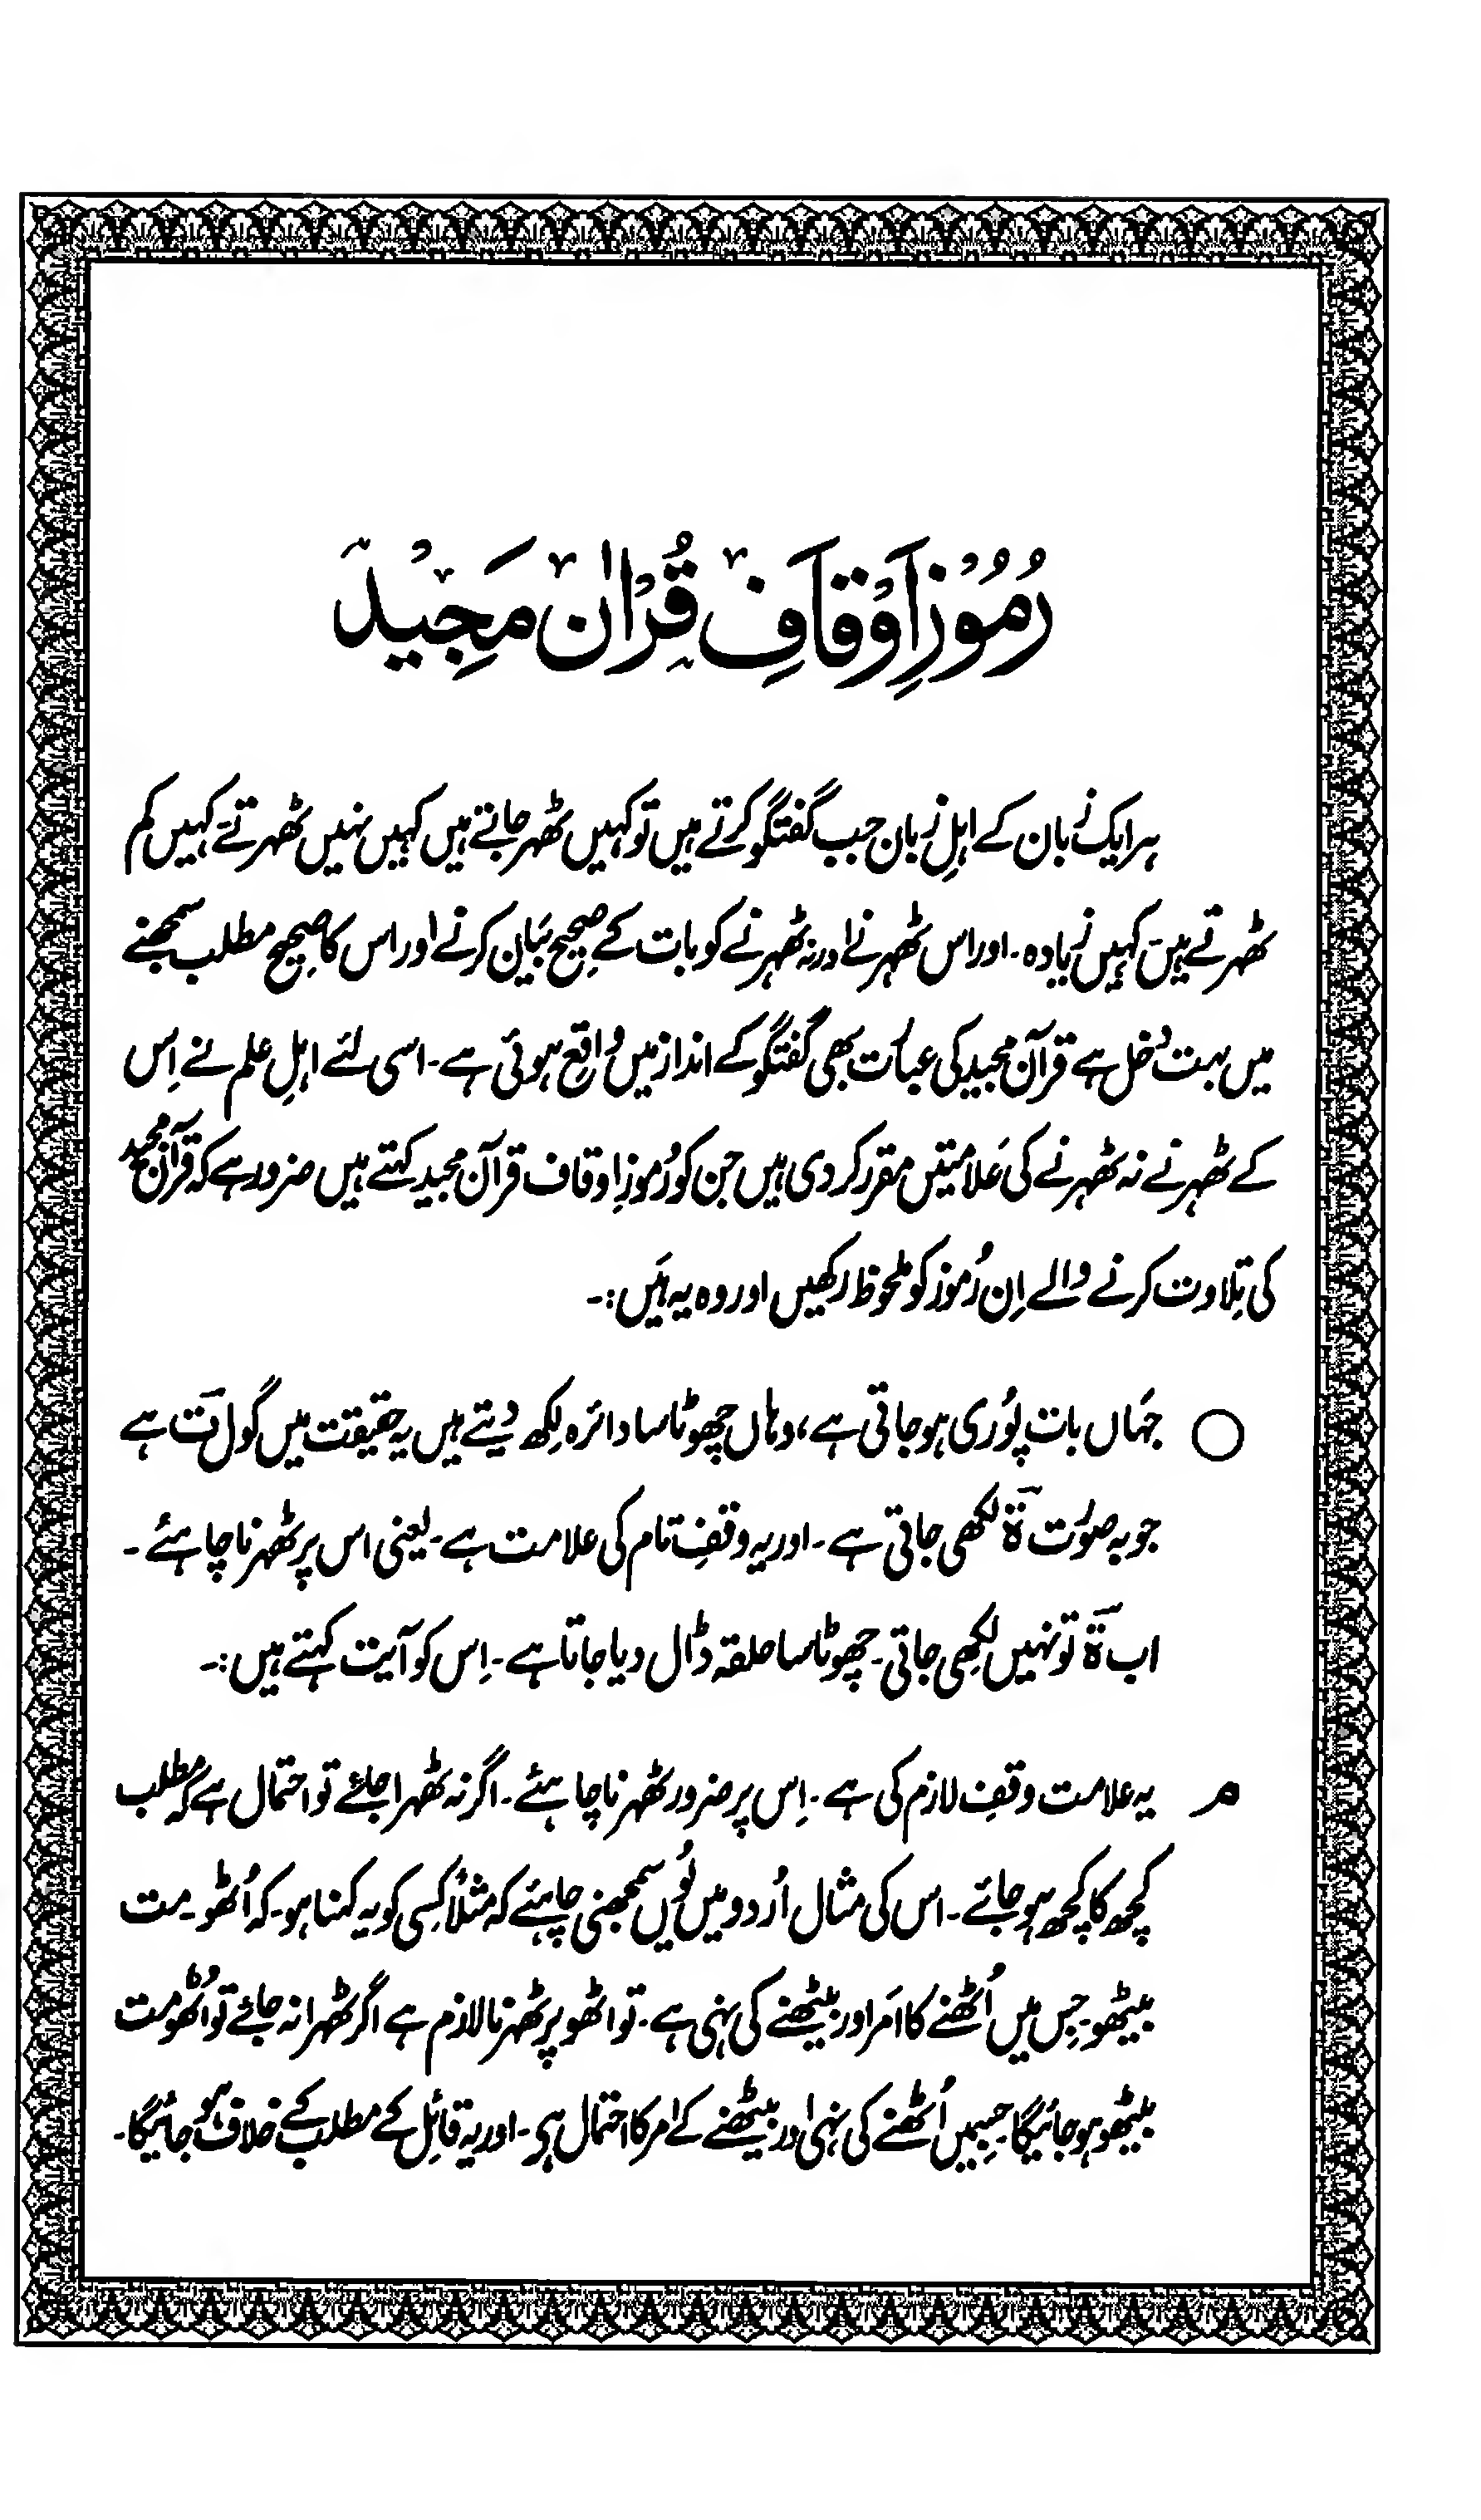 رُمُوْزِ اَوْقَافِ قُرْاٰن مَجِیْد
ہر ایک زبان کے اہلِ زبان جب گفتگو کرتے ہیں تو کہیں ٹھہر جاتے ہیں کہیں نہیں ٹھہرتے، کہیں کم
ٹھہرتے ہیں کہیں زیادہ۔ اور اس ٹھہرنے اور نہ ٹھہرنے کو بات کے صحیح بیان کرنے اور اس کا صحیح مطلب سمجھنے
میں بہت دخل ہے قرآن مجید کی عبارت بھی گفتگو کے انداز میں واقع ہوئی ہے۔ اسی لئے اہلِ علم نے اِس
کے ٹھہرنے نہ ٹھہرنے کی علامتیں مقرر کر دی ہیں جن کو رُموزِ اوقاف قرآن مجید کہتے ہیں ضرور ہے کہ قرآن مجید
کی تِلاوت کرنے والے اِن رُموز کو ملحوظ رکھیں اور وہ یہ ہَیں:۔
○ جہاں بات پُوری ہو جاتی ہے، وہاں چھوٹا سا دائرہ لِکھ دیتے ہیں یہ حقیقت میں گول تؔ ہے
جو بہ صوُرت ۃؔ لکھی جاتی ہے۔ اور یہ وقفِ تام کی علامت ہے۔ یعنی اس پر ٹھہرنا چاہئے۔
اب ۃؔ تو نہیں لکھی جاتی۔ چھوٹا سا حلقہ ڈال دیا جاتا ہے۔ اِس کو آیت کہتے ہیں:۔
مـ یہ علامت وقفِ لازم کی ہے۔ اِس پر ضرور ٹھہرنا چاہئے۔ اگر نہ ٹھہرا جائے تو احتمال ہے کہ مطلب
کچھ کا کچھ ہو جائے۔ اس کی مثال اُردو میں یُوں سمجھنی چاہئے کہ مثلاً کِسی کو یہ کہنا ہو۔ کہ اُٹھو۔ مت
بیٹھو۔ جِس میں اُٹھنے کا اَمر اور بیٹھنے کی نہی ہے۔ تو اٹھو پر ٹھہرنا لازم ہے اگر ٹھہرا نہ جائے تو اُٹھو مت
بیٹھو ہو جائیگا۔ جِسمیں اُٹھنے کی نہی اور بیٹھنے کے امر کا احتمال ہی۔ اور یہ قائل کے مطلب کے خلاف ہو جائیگا۔